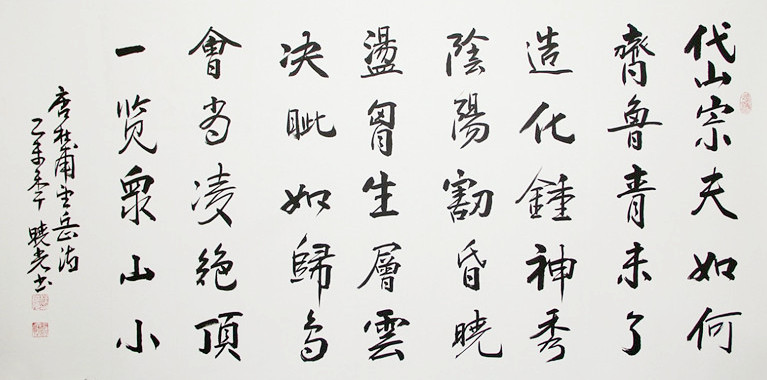 岱宗夫如何
齊魯青未了
造化鍾神秀
陰陽割昏曉
盪胷生層雲
决眦如歸鸟
會当凌絕頂
一览眾山小
唐杜甫望岳诗
乙未 曉光书